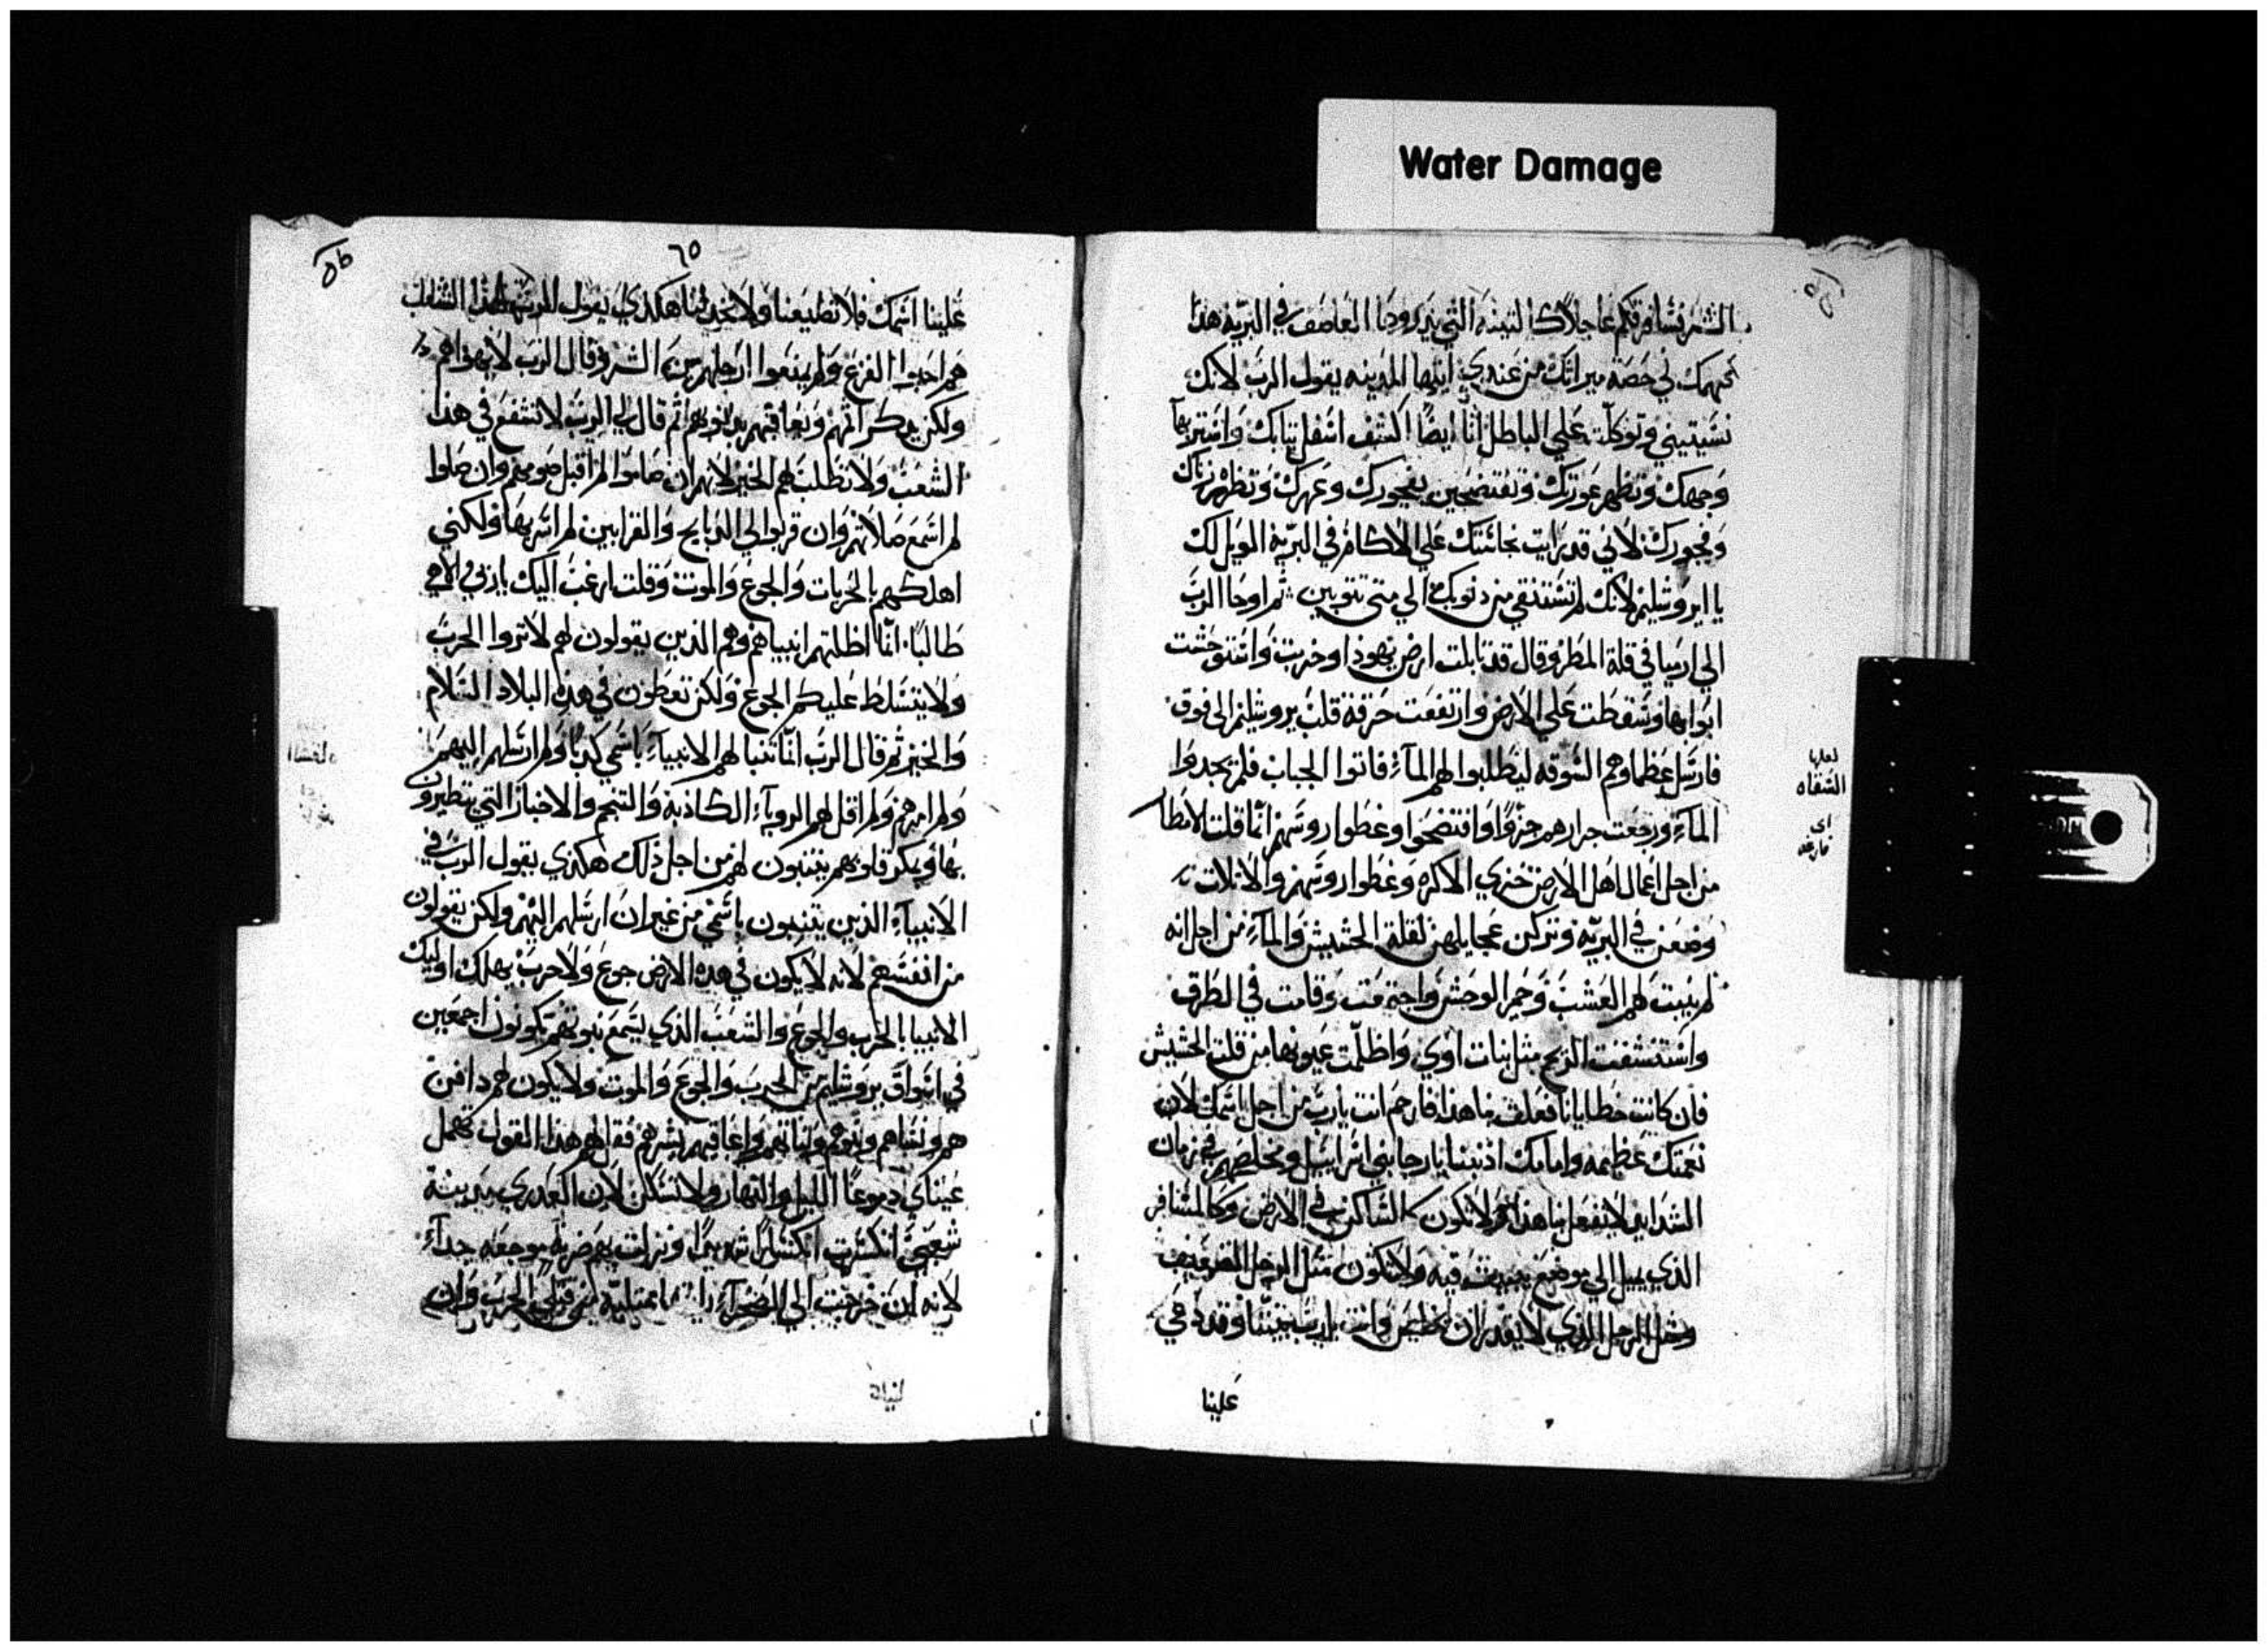 Water Damage
الشر فسافرقكم عاجلاً كالتبنه التي يذروها العاصف في البرّيه هذا
سهمك لي حصة ميراثك من عندي ايتها المدينه يقول الرب لانك
نسيتيني وتوكلت علي الباطل انا ايضاً اكشف اسفل ثيابك واستر بها
وجهك وتظهر عورتك وتفتضحين بفجورك وعهرك وتظهر زناك
وفجورك لاني قد رايت نجاستك علي الاكام في البريّة الويل لك
يا ايروشليم لانك لم تستنقي من ذنوبك الي متى تتوبين ثم اوحا الرب
الي ارميا في قلة المطر وقال قد تابلت ارض يهوذا وخربت واستوحشت
ابوابها وسقطت علي الارض وارتفعت حرقة قلب يروشليم الى فوق
فارسل عظماوهم السوقه ليطلبوا لهم المآء فاتوا الجباب فلم يجدوا
المآء ورجعت جرارهم حزواً وافتضحوا وغطوا روسهم انما قلت الامطا
من اجل اعمال اهل الارض خزي الاكره وغطوا روسهم والاتلات
وضعن في البريّه وتركن عجايلهن لقلة الحشيش والمآء من اجل انه
لم ينبت لهم العشب وحمر الوحش واجتمعت وقامت في الطرق
واستنشقت الريح مثل بنات اوي واظلمت عيونها من قلت الحشيش
فان كانت خطايانا فعلت بنا هذا فارحم انت يا رب من اجل اسمك لان
نعمتك عظيمه وامامك اذنبنا يا رجا بني اسرائيل ومخلصهم في زمان
الشدايد لا تفعل بنا هذا ولا تكون كالساكن في الارض وكالمسافر
الذي يميل الي موضع يبيت فيه ولا تكون مثل الرجل الضعيف
ومثل الرجل الذي لا يقدر ان يخلص وانت يا رب بيننا وقد دعي
علينا
لعلها
السقاه
اى
فارغه
٦٥
علينا اسمك فلا تطيعنا ولا تخذلنا هكذي يقول الرب لهذا الشعب
هم احبوا الفزع ولم يمنعوا ارجلهم من الشر وقال الرب لا يهواهم
ولكن يذكر اثمهم ويعاقبهم بذنوبهم ثم قال لي الرب لا تشفع في هذا
الشعب ولا تطلب لهم الخير لانهم ان صاموا لم اقبل صومهم وان صلوا
لم اسمع صلاتهم وان قربوا لي الذبايح والقرابين لم اسر بها ولكني
اهلكهم بالحربات والجوع والموت وقلت ارغب اليك يا ربي والاهي
طالباً انما اظلتهم انبياهم وهم الذين يقولون لهم لا تروا الحرب
ولا يتسلط عليكم الجوع ولكن تعطون في هذه البلاد السلام
والخير ثم قال الرب انما تنبا لهم الانبيآء باسمي كذباً ولم ارسلهم اليهم
ولم امرهم ولم اقل لهم الرويآء الكاذبة والتنجم والاخبار التي يتطيرون
بها وبمكر قلوبهم يتنبون لهم من اجل ذلك هكذي يقول الرب في
الانبيآء الذين يتنبون باسمي من غير ان ارسلهم اليهم ولكن يقولون
من انفسهم لانه لا يكون في هذه الارض جوع ولا حرب يهلك اوليك
الانبيا بالحرب والجوع والشعب الذي يسمع نبوتهم يكونون اجمعين
في اسواق يروشليم من الحرب والجوع والموت ولا يكون لهم دافن
هم ونساهم وبنوهم وبناتهم واعاقبهم بشرهم فقل لهم هذا القول تهمل
عيناي دموعاً الليل والنهار ولا تسكن لان العذري مدينة
شعبي انكسرت انكساراً شديداً ونزلت بهم ضربة موجعه جداً
لانه ان خرجت الي الصحرآء ممتلية من قتلي الحرب وان